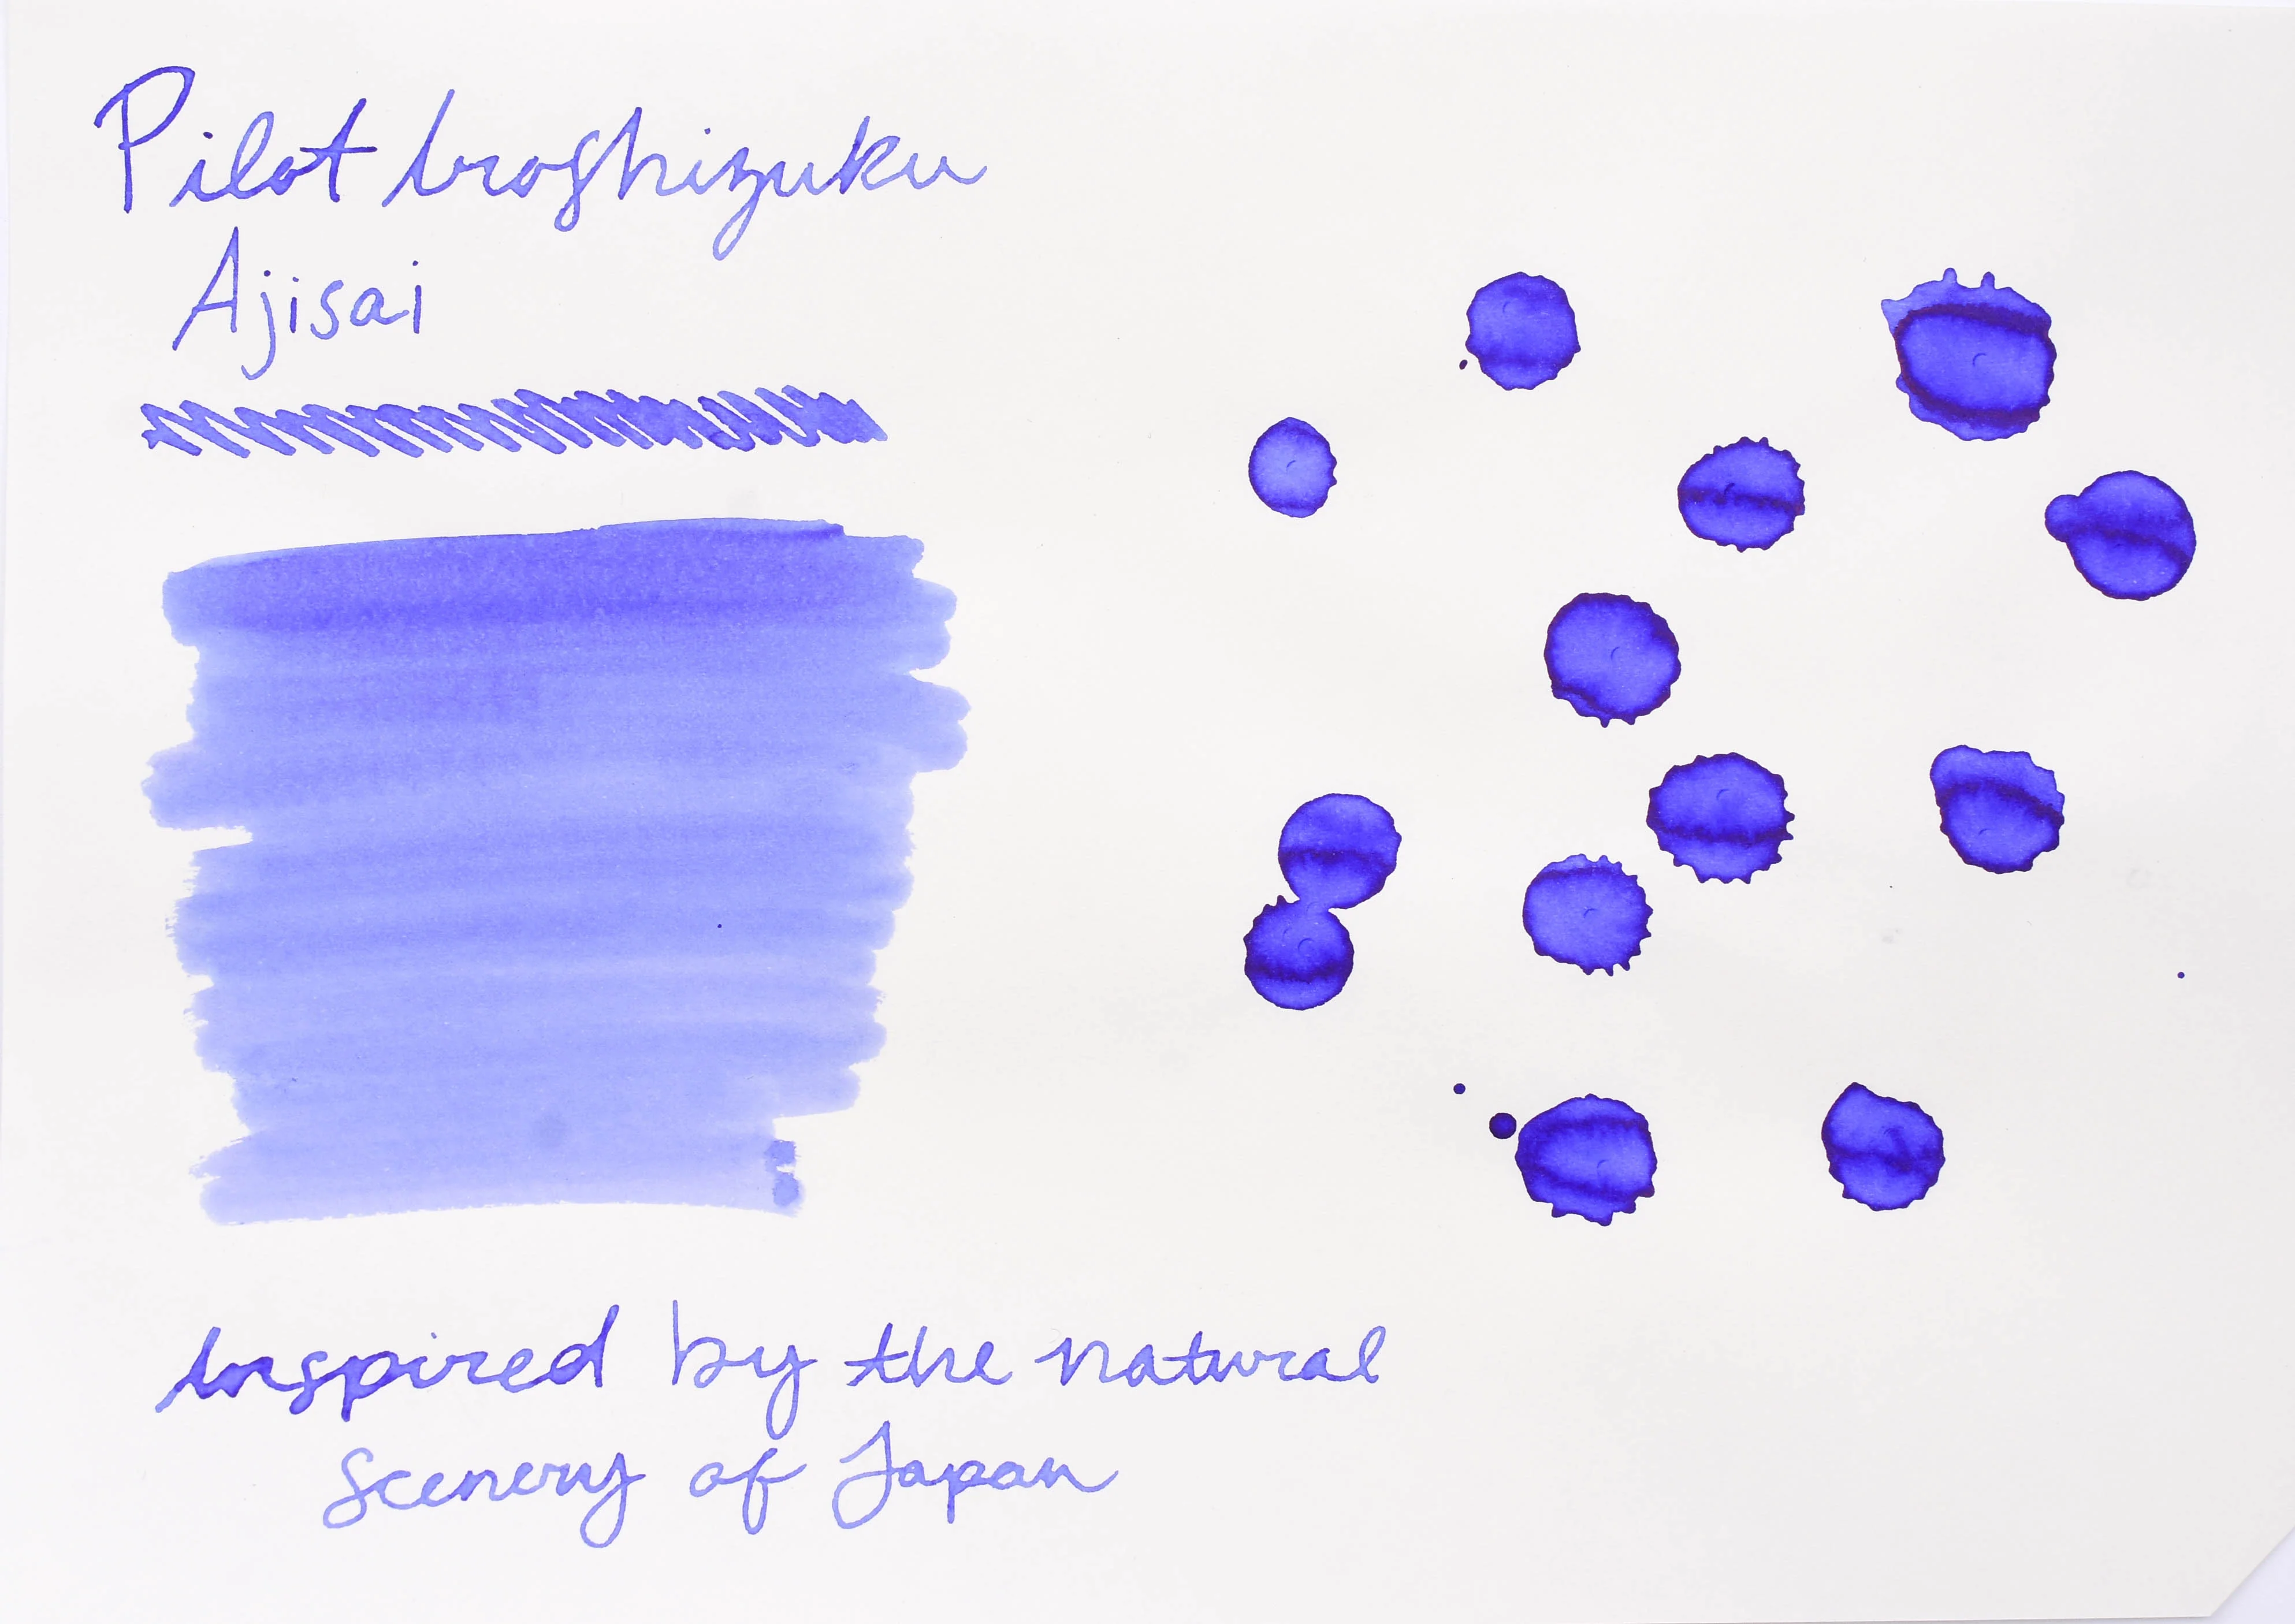 Pilot Iroshizuku
Ajisai
inspired by the natural
scenery of Japan